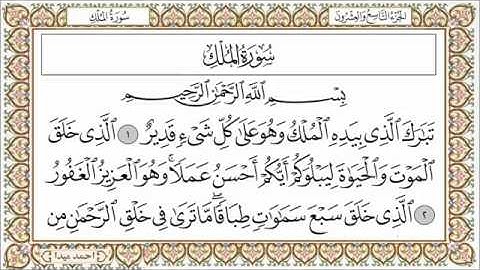 الجزء التاسع والعشرون
سورة الملك
سُورَةُ المُلْكِ
بِسْمِ اللَّهِ الرَّحْمَٰنِ الرَّحِيمِ
تَبَٰرَكَ الَّذِي بِيَدِهِ الْمُلْكُ وَهُوَ عَلَىٰ كُلِّ شَيْءٍ قَدِيرٌ ١ الَّذِي خَلَقَ
الْمَوْتَ وَالْحَيَوٰةَ لِيَبْلُوَكُمْ أَيُّكُمْ أَحْسَنُ عَمَلًا ۚ وَهُوَ الْعَزِيزُ الْغَفُورُ
٢ الَّذِي خَلَقَ سَبْعَ سَمَٰوَٰتٍ طِبَاقًا ۖ مَّا تَرَىٰ فِي خَلْقِ الرَّحْمَٰنِ مِن
احمد عبدا